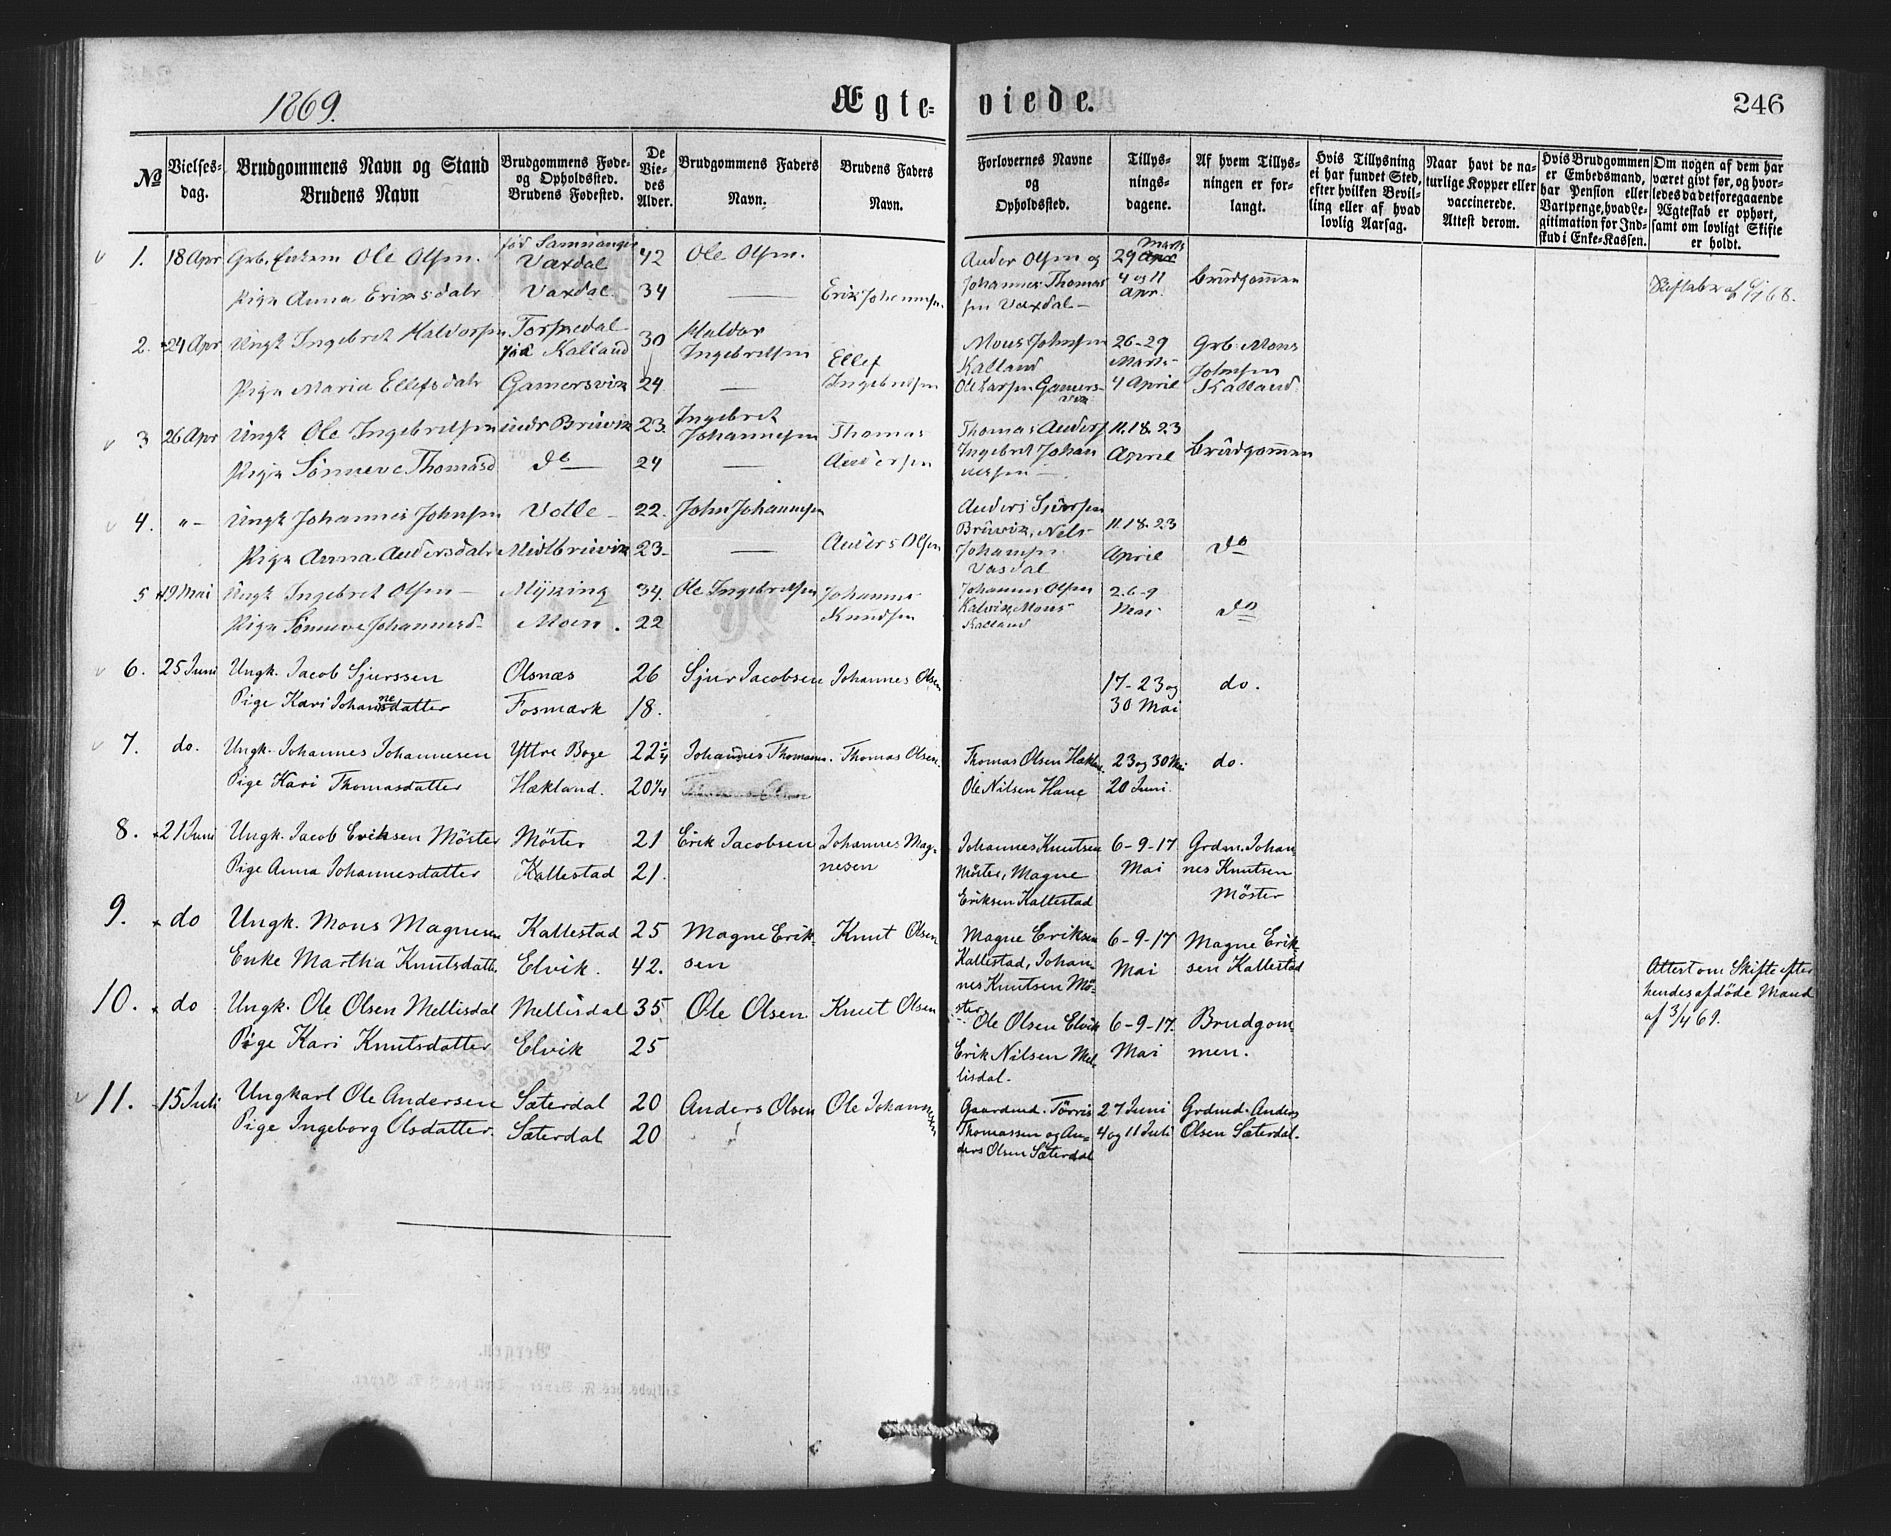 1869.
Ægte- viede.
246
No
Vielses-
dag.
Brudgommens Navn og Stand
Brudens Navn
Brudgommens Føde-
og Opholdssted.
Brudens Fødested.
De
Vie-
des
Alder.
Brudgommens Faders
Navn.
Brudens Faders
Navn.
Forlovernes Navne
og
Opholdssted.
Tillys-
nings-
dagene.
Af hvem Tillys-
ningen er for-
langt.
Hvis Tillysning
ei har fundet Sted,
efter hvilken Bevil-
ling eller af hvad
lovlig Aarsag.
Naar havt de na-
turlige Kopper eller
vaccinerede.
Attest derom.
Hvis Brudgommen
er Embedsmand,
har Pension eller
Vartpenge, hvad Le-
gitimation for Ind-
skud i Enke-Kassen.
Om nogen af dem har
været givt før, og hvor-
ledes da det foregaaende
Ægteskab er ophørt,
samt om lovligt Skifte
er holdt.
1. 18 Apr Grb. Enkem Ole Olsen. fød Samnanger
Vaxdal 42 Ole Olsen. Ander Olsen og 29 Marts
Pige Anna Eriksdatr Vaxdal. 34 Erik Johannesen. Johannes Thomas 4 og 11 Brudgommen
sen Vaxdal Apr.
2. 24 Apr Ungk Ingebret Haldorsen Torsnedal 30 Haldor Mons Johnsen 26-29 Grb. Mons
fød Kalland Ingebretsen Ellef Kalland Marts Johnsen
Pige Maria Ellefsdatr Gamersvik 24 Ingebretsen Ole Larsen Gamers- 4 April Kalland
vik
3 26 Apr Ungk Ole Ingebretsen indr Bruvik 23. Ingebret Johannesen Thomas Thomas Anders 11. 18. 23
Pige Sønneve Thomasd do 24 Andersen Ingebret Johan April Brudgommen
nesen
4. "- Ungk Johannes Johnsen Votle 22. John Johannesen Anders Sjursen
Bruvik, Nils 11. 18. 23
Pige Anna Andersdatr Midtbruvik 23- Anders Olsen April do
Vasdal
5 19 Mai Ungk Ingebret Olsen Myking 34. Ole Ingebretsen Johannes Johannes Olsen 2. 6-9
Pige Sønneve Johannesd Moen. 22 Knudsen Kalvik, Mons Mai do
Kalland
6. 25 Juni Ungk. Jacob Sjurssen Olsnæs 26 Sjur Jacobsen Johannes Olsen
Pige Kari Johannesdatter Fosmark 18. 17-23 og do.
30 Mai
7. do. Ungk. Johannes Johannesen Yttre Boge 22 1/4 Johannes Thomasen. Thomas Olsen. Thomas Olsen Hækland 23 og 30 Mai do.
Pige Kari Thomasdatter Hækland. 20 1/4 Thomas Olsen Ole Nilsen Hane 20 Juni.
8. 21 Juni Ungk. Jacob Eriksen Møster Møster 21 Erik Jacobsen Johannes Mag- Johannes Knutsen 6-9-17 Grdm. Johan-
Pige Anna Johannesdatter Kallestad 21. nesen Møster, Magne Mai nes Knutsen
Eriksen Kallestad Møster
9. do Ungk. Mons Magnesen Kallestad 25 Magne Erik- Knut Olsen Magne Eriksen 6-9-17 Magne Erik-
Enke Martha Knutsdatt. Elvik. 42. sen Kallestad, Johan- Mai sen Kallestad Attest om Skifte efter
nes Knutsen Mö- hendes afdöde Mand
ster. af 3/4 69.
10. do Ungk. Ole Olsen Mellisdal Mellisdal 35 Ole Olsen Knut Olsen Ole Olsen Elvik 6-9-17. Brudgom-
Pige Kari Knutsdatter Elvik 25 Erik Nilsen Mel- Mai men.
lisdal.
11. 15 Juli Ungkarl Ole Andersen Sæterdal 20 Anders Olsen Ole Johannesen Gaardmd. Tørris 27 Juni Grdmd. Anders
Pige Ingeborg Olsdatter. Sæterdal 20 Thomassen og An- 4 og 11 Juli Olsen Sæterdal.
ders Olsen Sæterdal